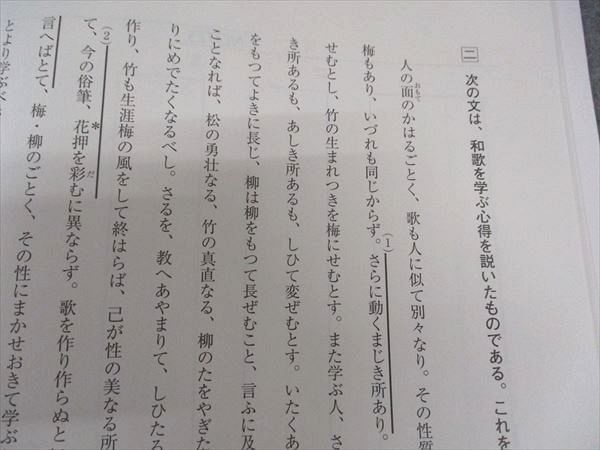 二 次の文は、和歌を学ぶ心得を説いたものである。これを
人の面のかはるごとく、歌も人に似て別々なり。その性質
おもて
梅もあり、いづれも同じからず。さらに動くまじき所あり。
(1)
せむとし、竹の生まれつきを梅にせむとす。また学ぶ人、さ
き所あるも、あしき所あるも、しひて変ぜむとす。いたくあ
をもつてよきに長じ、柳は柳をもつて長ぜむこと、言ふに及
ことなれば、松の勇壮なる、竹の真直なる、柳のたをやぎた
りにめでたくなるべし。さるを、教へあやまりて、しひたる
作り、竹も生涯梅の風をして終はらば、己が性の美なる所
(2)
て、今の俗筆、花押を彩むに異ならず。歌を作り作らぬと
*
だ
言へばとて、梅・柳のごとく、その性にまかせおきて学ぶ
とより学ぶべ